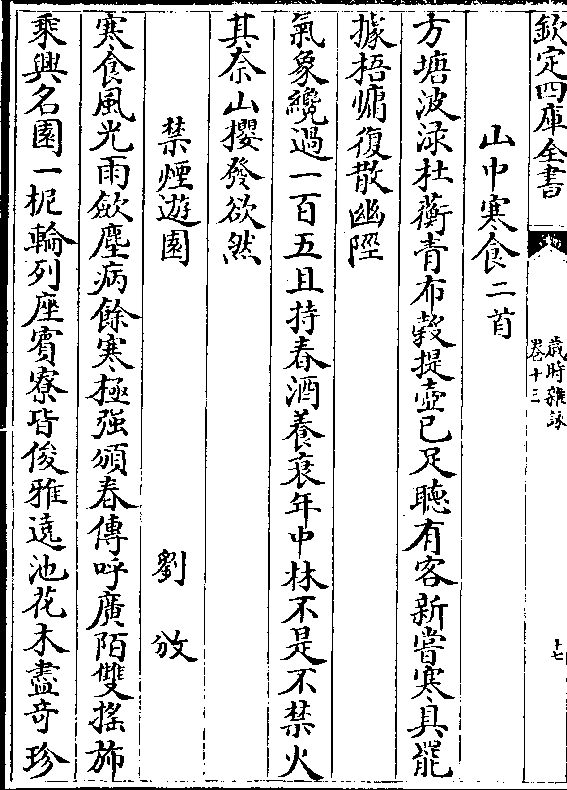 欽定四庫全書
歲時雜詠
卷十三
十七
山中寒食二首
方塘波渌杜蘅青布穀提壺已足聴有客新嘗寒具罷
據梧慵復散幽陘
氣象纔過一百五且持春酒養衰年中林不是不禁火
其奈山攖發欲然
禁煙遊園
劉攽
寒食風光雨斂塵病餘寒極强頒春傳呼廣陌雙摇斾
乘興名園一柅輪列座賓寮皆俊雅遶池花木盡奇珍